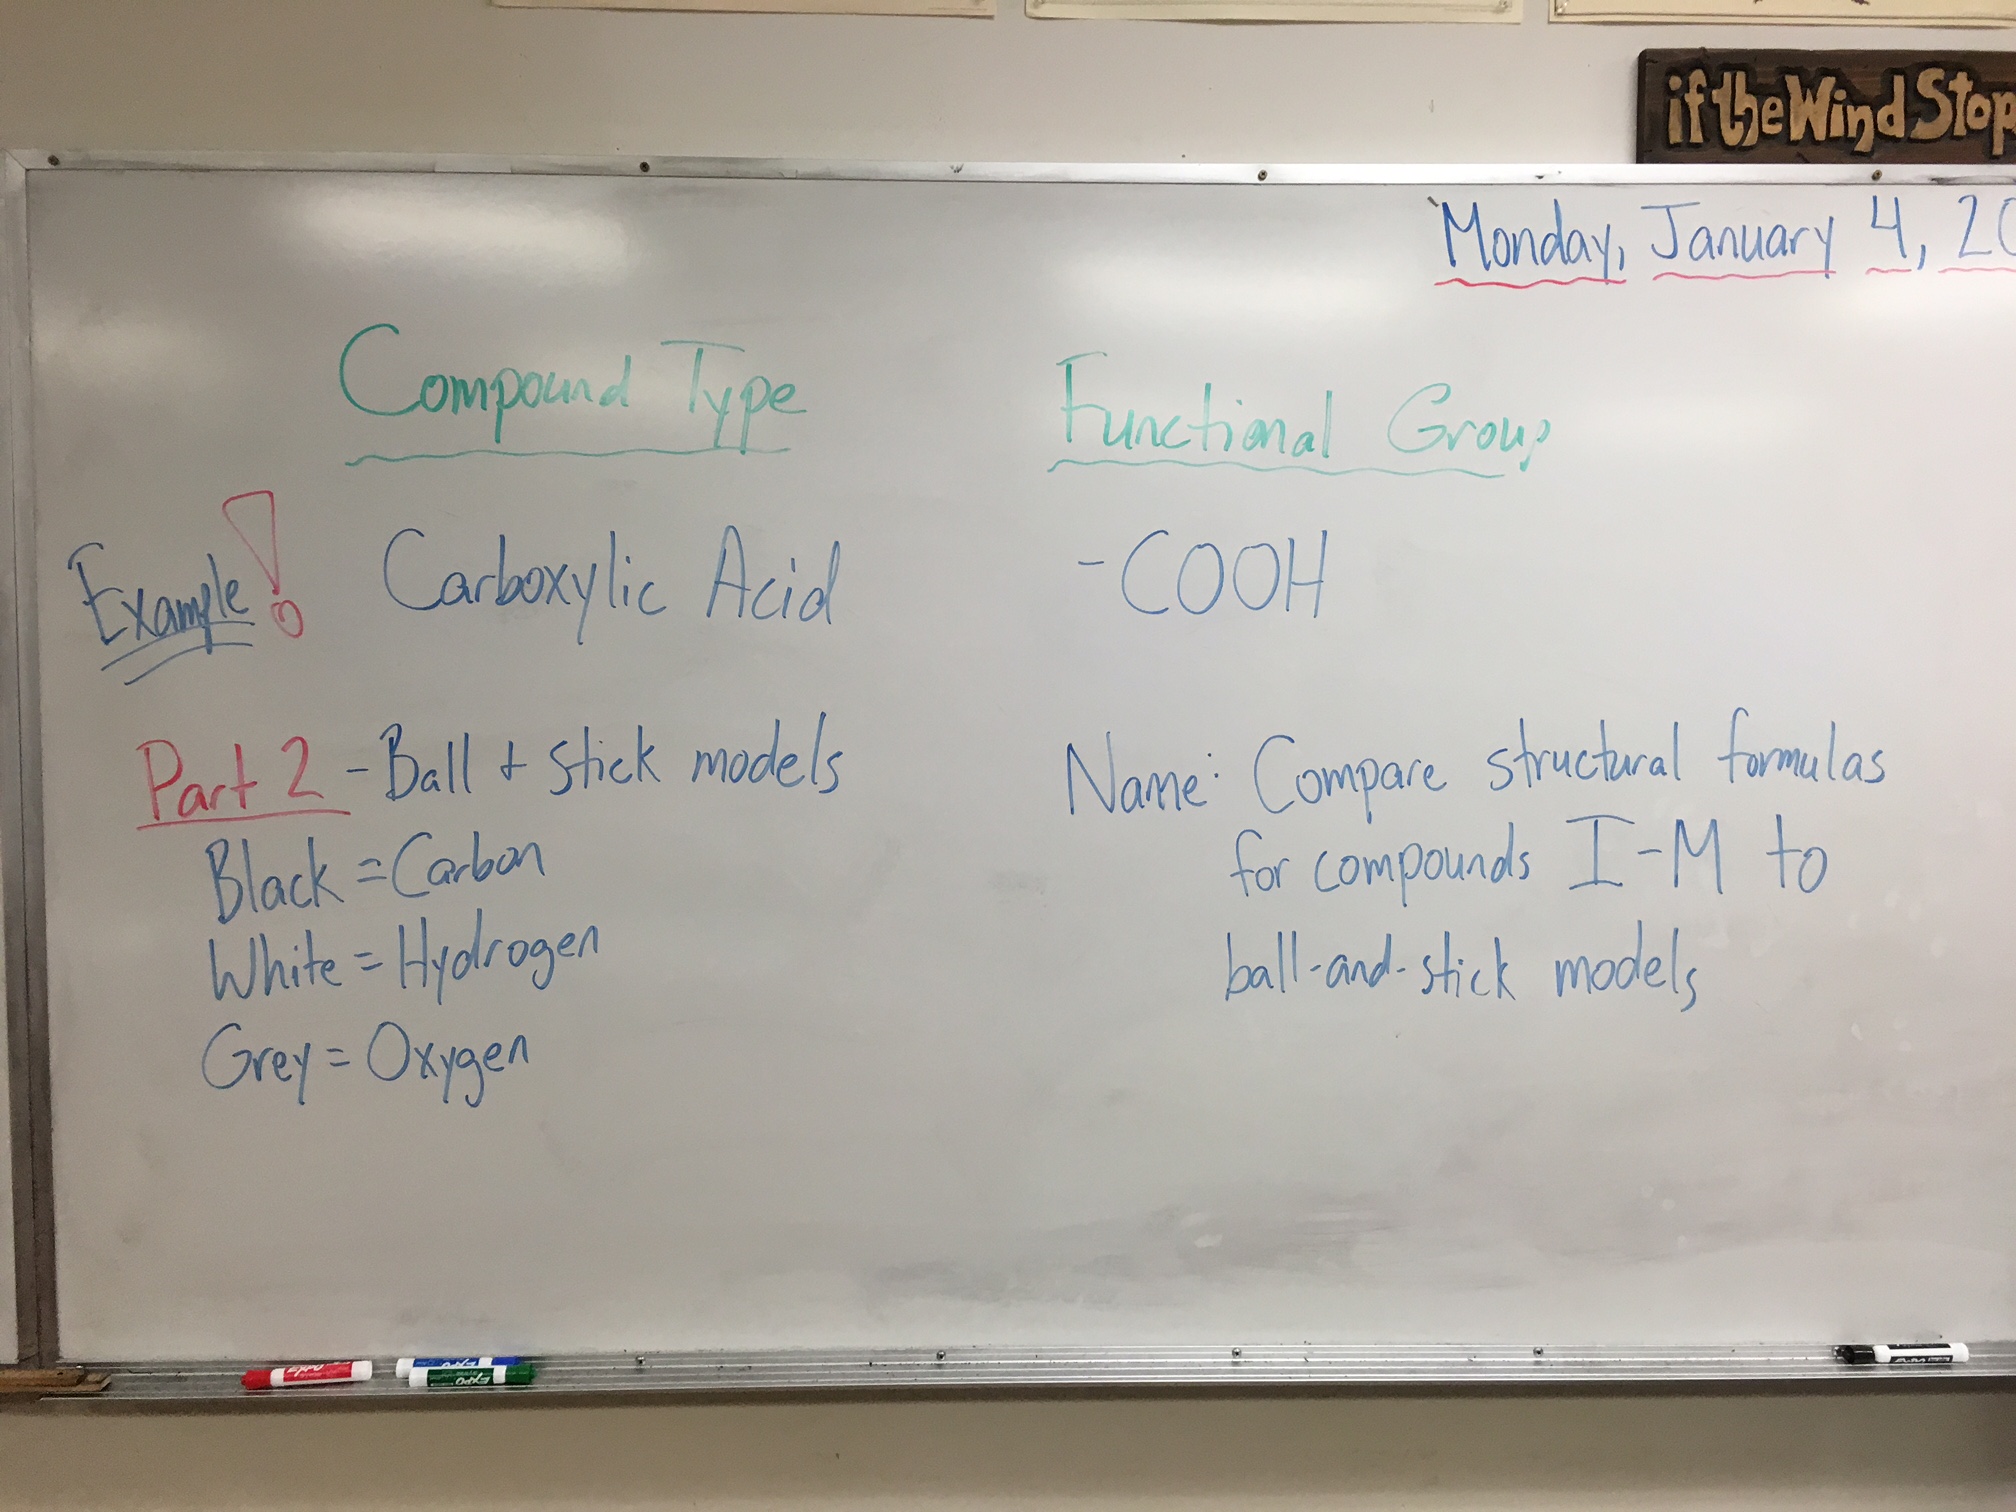 if the Wind Stop
Monday, January 4, 20
Compound Type
Functional Group
Example!
Carboxylic Acid
-COOH
Part 2 - Ball + stick models
Black = Carbon
White = Hydrogen
Grey = Oxygen
Name: Compare structural formulas
for compounds I-M to
ball-and-stick models
EXPO
EXPO
EXPO
EXPO